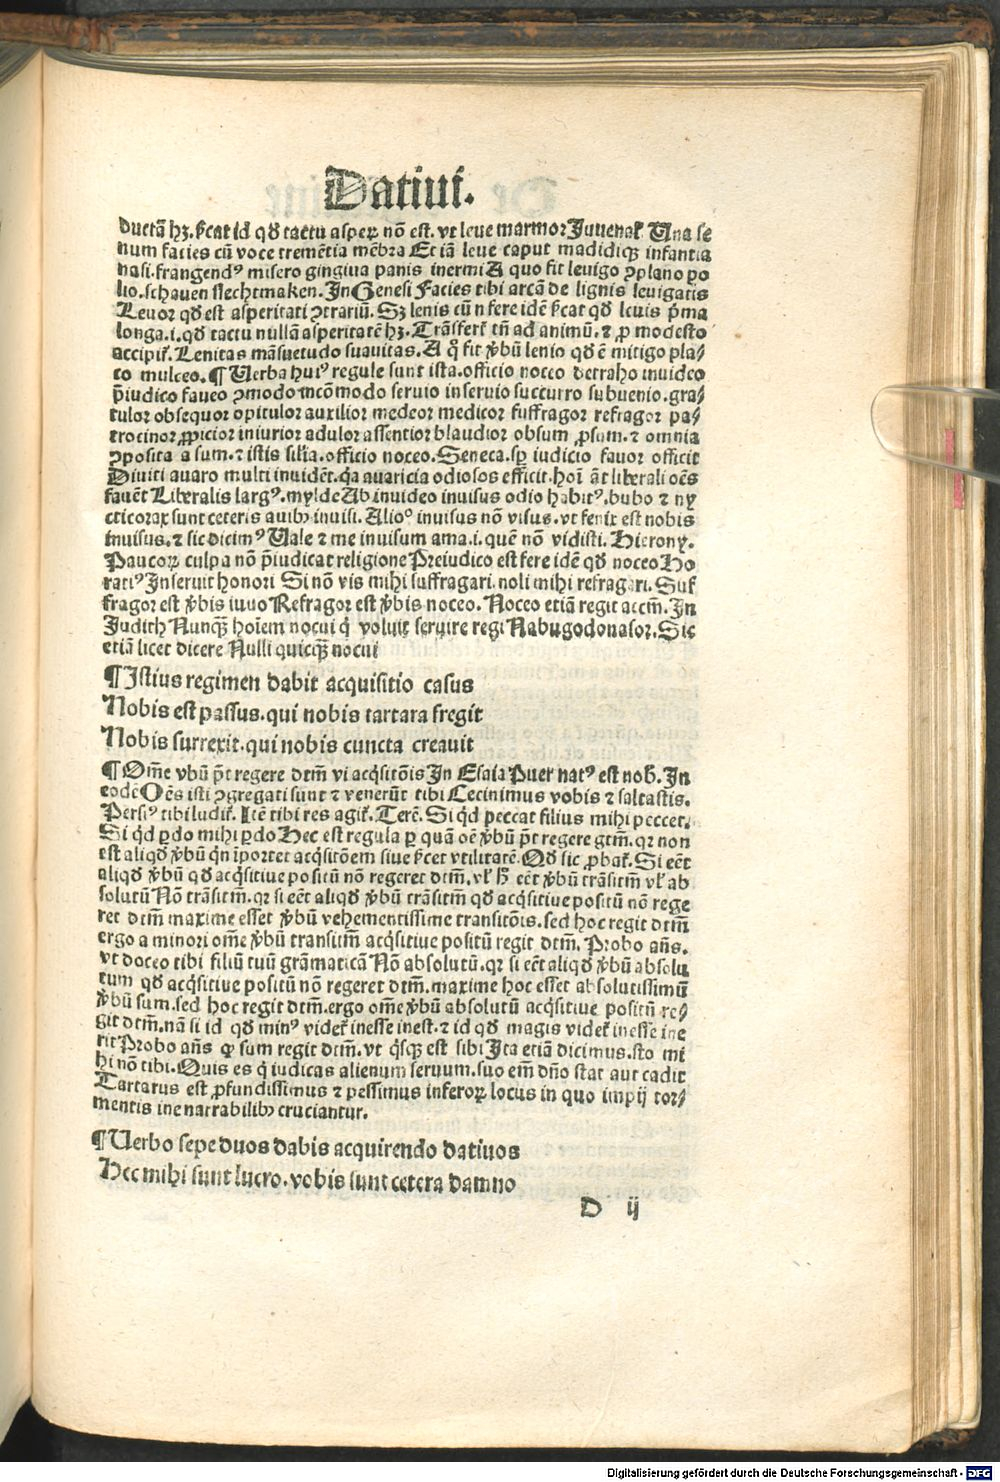 Datiui.
ductā hꝫ. ſicat id qd̄ tactu asperꝝ nō est. vt leue marmor Juuenaƚ Una se
num facies cū voce trementia mēbra Et iā leue caput madidiqꝫ infantia
nasi. frangendꝰ misero gingiua panis inermi A quo fit leuigo ꝯplano po
lio. schauen slechtmaken. In Genesi Facies tibi arcā de lignis leuigatis
Leuor qd̄ est asperitati ꝯtrariū. Sꝫ lenis cū n fere idē ſicat qd̄ leuis p̄ma
longa. i. qd̄ tactu nullā asperitatē hꝫ. Trāsfert̉ tn̄ ad animū. ⁊ ꝓ modesto
accipit̉. Lenitas māsuetudo suauitas. A q̊ fit v̄bū lenio qd̄ ē mitigo pla⸗
co mulceo. ¶ Uerba huiꝰ regule sunt ista. officio noceo detraho inuideo
p̄iudico faueo ꝯmodo incōmodo seruio inseruio succurro subuenio. gra⸗
tulor obsequor opitulor auxilior medeor medicor suffragor refragor pa⸗
trocinor ꝓpicior iniurior adulor assentior blandior obsum ꝓsum. ⁊ omnia
ꝯposita a sum. ⁊ istis sil̓ia. officio noceo. Seneca. sꝑ iudicio fauor officit
Diuiti auaro multi inuidēt. qa auaricia odiosos efficit. hoī āt liberali oēs
fauēt Liberalis largꝰ. mylde Ab inuideo inuisus odio habitꝰ. bubo ⁊ ny
cticorax sunt ceteris auibꝫ inuisi. Alioº inuisus nō visus. vt fenix est nobis
inuisus. ⁊ sic dicimꝰ Uale ⁊ me inuisum ama. i. quē nō vidisti. Hierony.
Paucoꝝ culpa nō p̄iudicat religione Preiudico est fere idē qd̄ noceo Ho
ratiꝰ Inseruit honori Si nō vis mihi suffragari. noli mihi refragari. Suf
fragor est v̄bis iuuo Refragor est v̄bis noceo. Noceo etiā regit accm̄. In
Judith Nunqꝫ hoīem nocui q̄ voluit seruire regi Nabugodonasor. Sic
etiā licet dicere Nulli quicqꝫ nocui
¶ Istius regimen dabit acquisitio casus
Nobis est passus. qui nobis tartara fregit
Nobis surrexit. qui nobis cuncta creauit
¶ Om̄e vbū p̄t regere dtm̄ vi acq̄sitōis In Esaia Puer natꝰ est nob̄. In
eodē Oēs isti ꝯgregati sunt ⁊ venerūt tibi Cecinimus vobis ⁊ saltastis.
Persiꝰ tibi ludit̉. Itē tibi res agit̉. Terē. Si qd̄ peccat filius mihi peccet.
Si qd̄ ꝑdo mihi ꝑdo Hec est regula ꝑ quā oē v̄bū p̄t regere dtm̄. qr non
est aliqd̄ v̄bū qn̄ īportet acq̄sitōem siue ſicet vtilitatē. Qd̄ sic ꝓbat̉. Si eēt
aliqd̄ v̄bū qd̄ acq̄sitiue positū nō regeret dtm̄. vƚ h̄ eēt v̄bū trāsitm̄ vƚ ab
solutū Nō trāsitm̄. qr si eēt aliqd̄ v̄bū trāsitm̄ qd̄ acq̄sitiue positū nō rege
ret dtm̄ maxime esset v̄bū vehementissime transitōis. sed hoc regit dtm̄
ergo a minori om̄e v̄bū transitm̄ acq̄sitiue positū regit dtm̄. Probo an̄s.
vt doceo tibi filiū tuū grāmaticā Nō absolutū. qr si eēt aliqd̄ v̄bū absolu
tum qd̄ acq̄sitiue positū nō regeret dtm̄. maxime hoc esset absolutissimū
v̄bū sum. sed hoc regit dtm̄. ergo om̄e v̄bū absolutū acq̄sitiue positū re⸗
git dtm̄. nā si id qd̄ minꝰ videt̉ inesse inest. ⁊ id qd̄ magis videt̉ inesse ine
rit Probo an̄s ꝙ sum regit dtm̄. vt q̄sqꝫ est sibi Ita etiā dicimus. sto mi
hi nō tibi. Quis es q̄ iudicas alienum seruum. suo em̄ dn̄o stat aut cadit
Tartarus est ꝓfundissimus ⁊ pessimus inferoꝝ locus in quo impij tor⸗
mentis inenarrabilibꝫ cruciantur.
¶ Uerbo sepe duos dabis acquirendo datiuos
Hec mihi sunt lucro. vobis sunt cetera damno
D ij
Digitalisierung gefördert durch die Deutsche Forschungsgemeinschaft - DFG